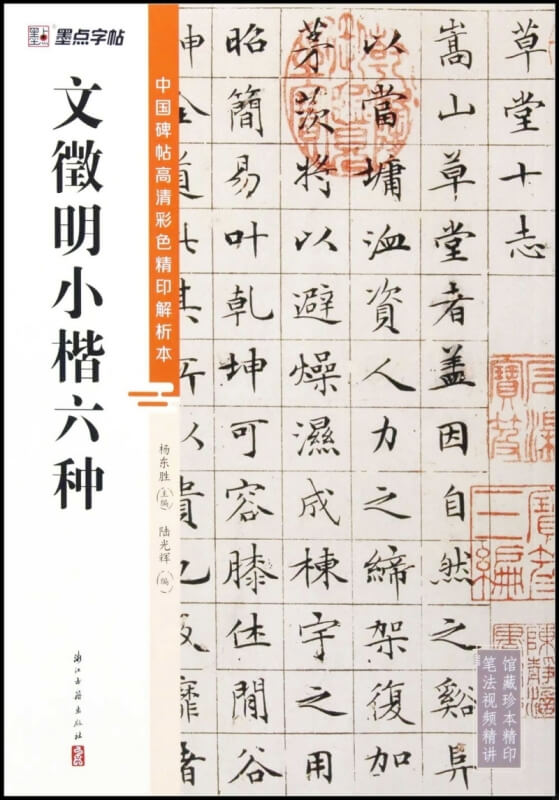 墨点字帖
文徵明小楷六种
中国碑帖高清彩色精印解析本
杨东胜(主编) 陆光辉(编)
浙江古籍出版社
草堂十志
嵩山草堂者蓋因自然之谿阜
以當墉洫資人力之締架復加
茅茨將以避燥濕成棟宇之用
昭簡易叶乾坤可容膝休閒谷
石渠寶笈
寶笈三編
馆藏珍本精印
笔法视频精讲